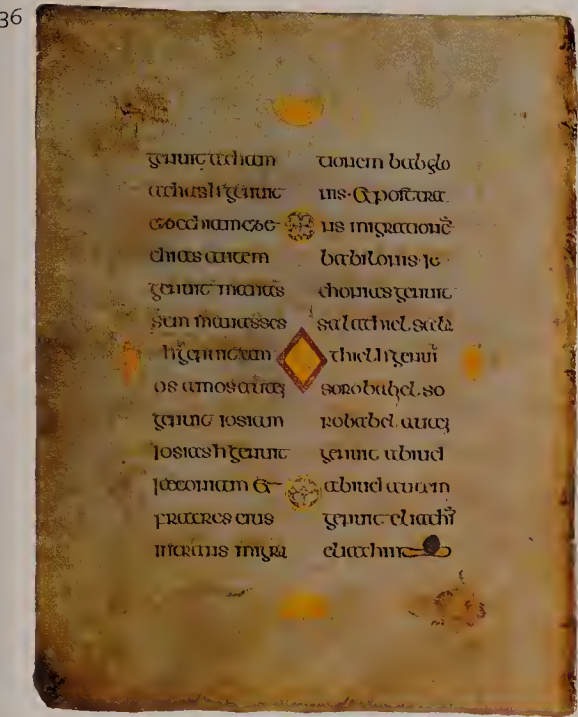 36
genuit acham
achas h genuit
ezechiam eze
chias autem
genuit manas
sem manasses
h genuit am
os amos aute
genuit iosiam
iosias h genuit
ieconiam et
fratres eius
in trans migra
tionem babylo
nis · et post tra
ns migratione
babilonis · ie
chonias genuit
salathiel · sala
thiel h genui
sorobabel · so
robabel aute
genuit abiud
abiud autem
genuit eliachi
eliachim